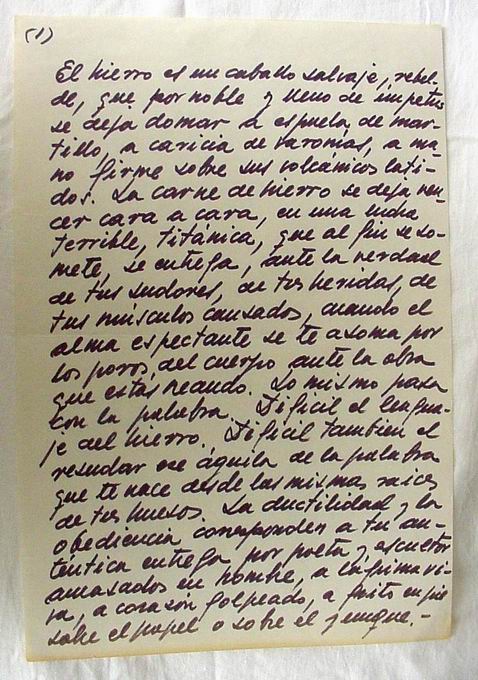 (1)
El hierro es un caballo salvaje, rebel-
de, que por noble y lleno de ímpetus
se deja domar a espuela de mar-
tillo, a caricia de varonías, a ma-
no firme sobre sus volcánicos lati-
dos. La carne de hierro se deja ven-
cer cara a cara, en una lucha
terrible, titánica, que al fin se so-
mete, se entrega, ante la verdad
de tus sudores, de tus heridas, de
tus músculos cansados, cuando el
alma espectante se te asoma por
los poros del cuerpo ante la obra
que estás creando. Lo mismo pasa
con la palabra. Difícil el lengua-
je del hierro. Difícil también el
resudar ese águila de la palabra
que te nace desde las mismas raices
de tus huesos. La ductilidad y la
obediencia corresponden a tu au-
téntica entrega por poeta y escultor
amasados en hombre, a lágrima vi-
va, a corazón golpeado, a grito en
sobre el papel o sobre el yunque.-